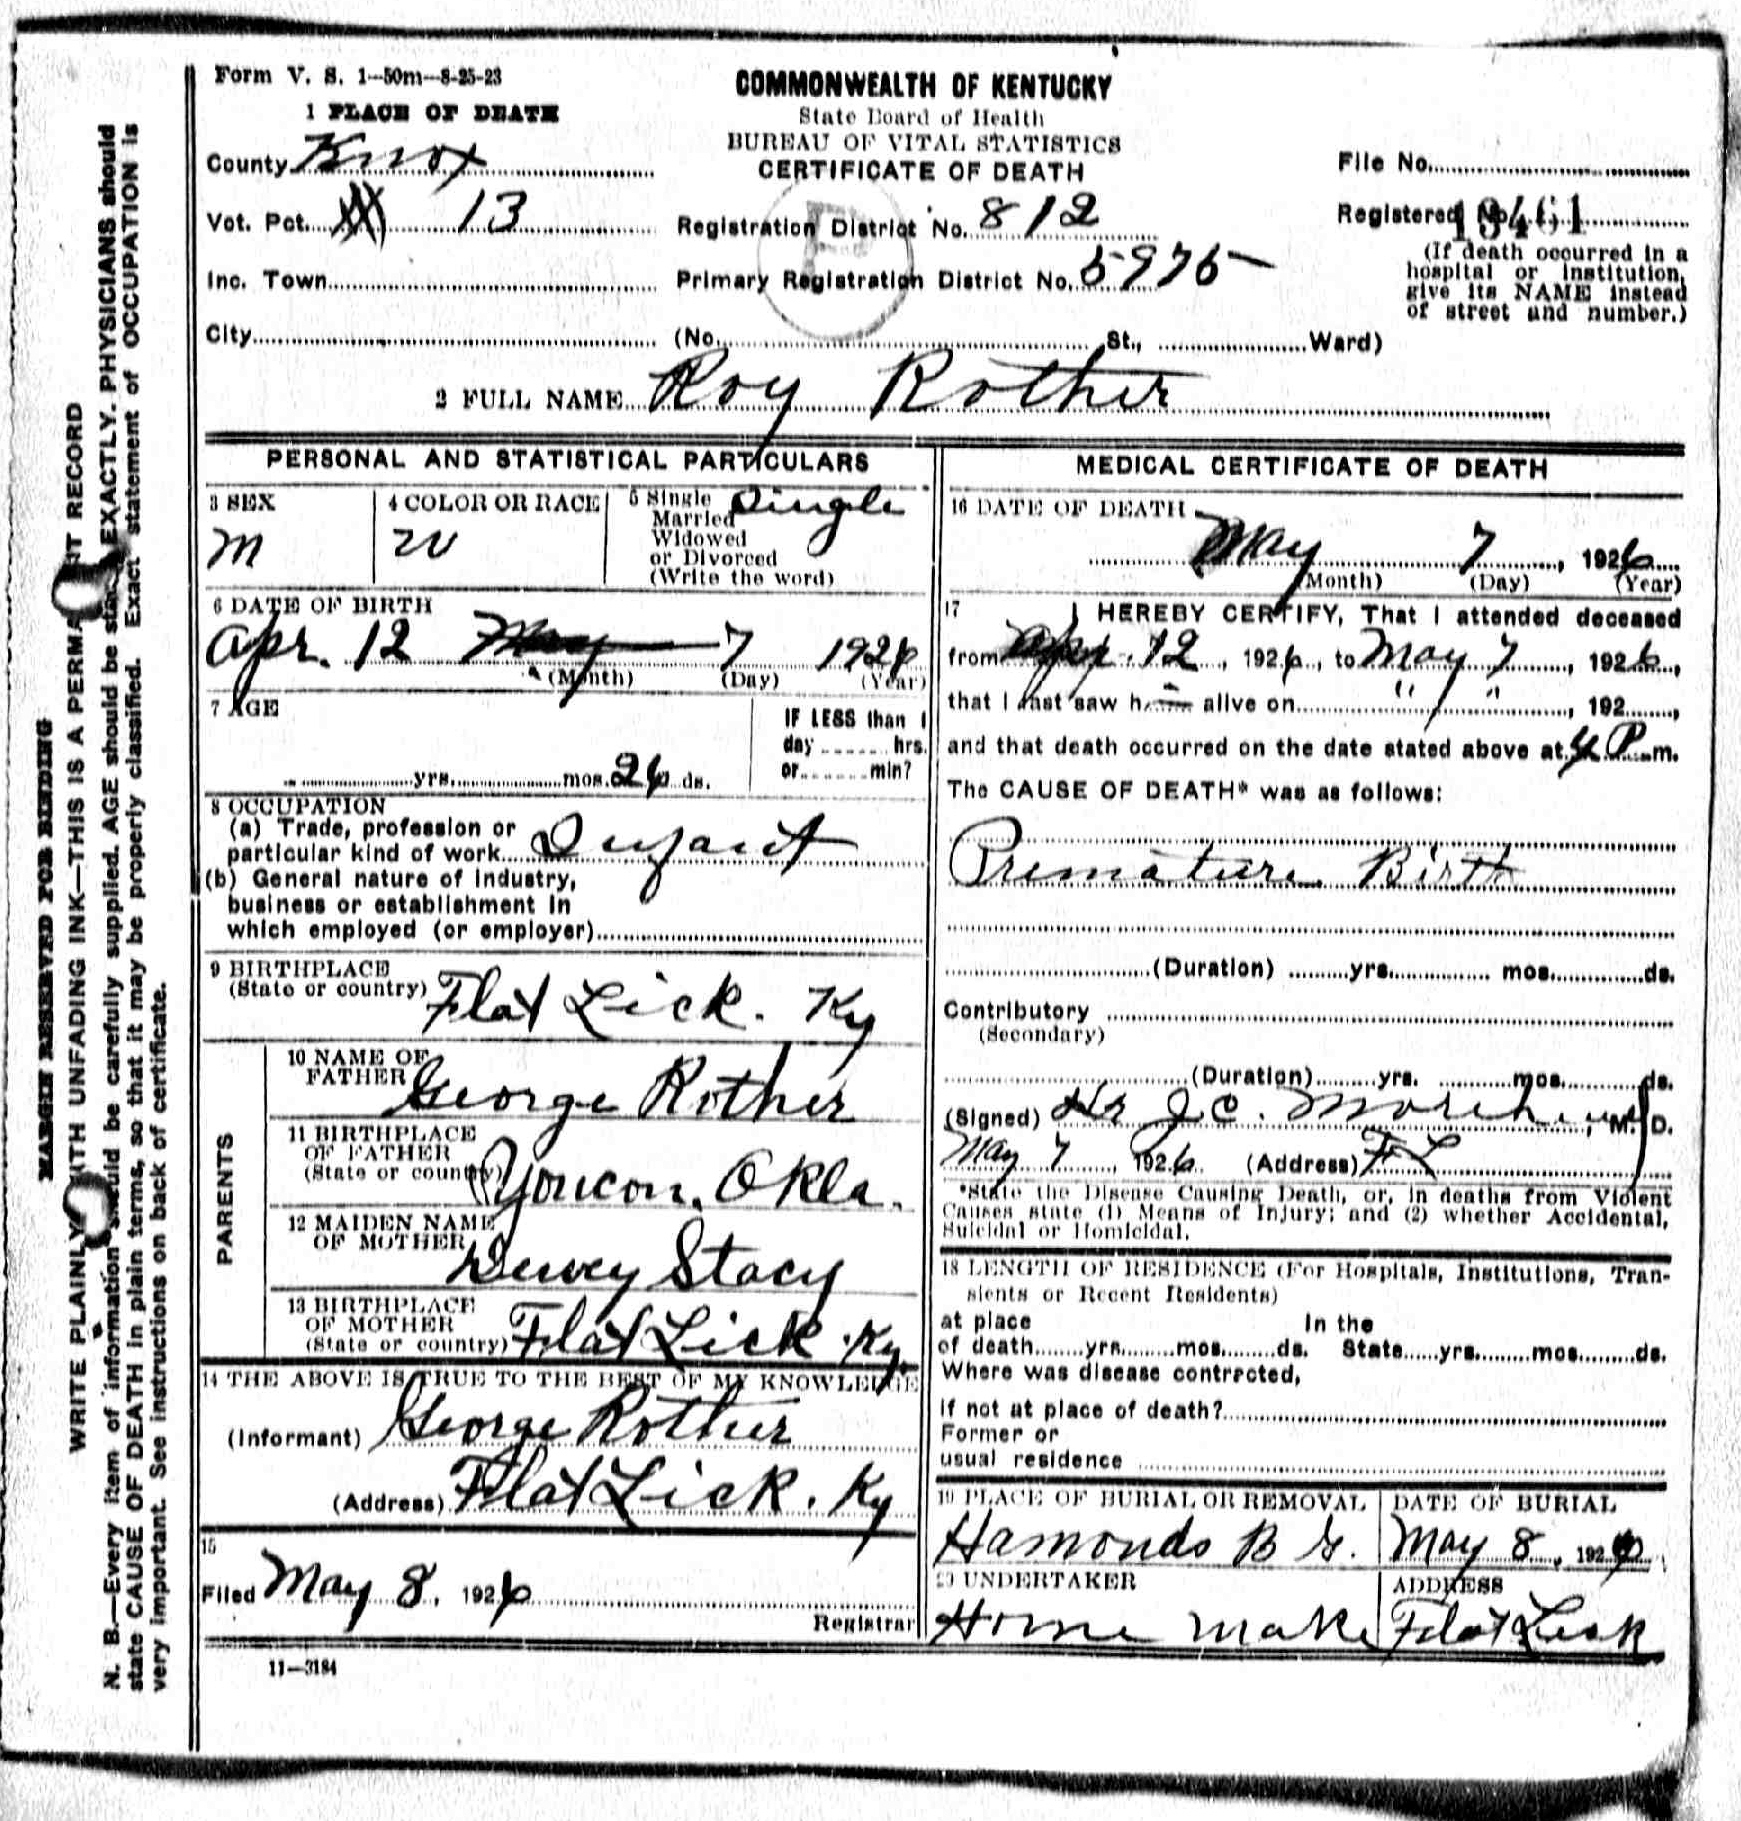 Form V. S. 1—50m—8-25-23
COMMONWEALTH OF KENTUCKY
State Board of Health
BUREAU OF VITAL STATISTICS
CERTIFICATE OF DEATH
1 PLACE OF DEATH
County Knox
Vot. Pct. 13
Inc. Town
City
Registration District No. 812
Primary Registration District No. 5975
(No. St., Ward)
File No.
Registered No.
(If death occurred in a
hospital or institution,
give its NAME instead
of street and number.)
2 FULL NAME Roy Rother
PERSONAL AND STATISTICAL PARTICULARS
3 SEX
M
4 COLOR OR RACE
W
5 Single Single
Married
Widowed
or Divorced
(Write the word)
6 DATE OF BIRTH
Apr. 12 May 7 1926
(Month) (Day) (Year)
7 AGE
yrs. mos. 26 ds.
IF LESS than 1
day hrs.
or min?
8 OCCUPATION
(a) Trade, profession or
particular kind of work Infant
(b) General nature of industry,
business or establishment in
which employed (or employer)
9 BIRTHPLACE
(State or country) Flat Lick. Ky
PARENTS
10 NAME OF
FATHER George Rother
11 BIRTHPLACE
OF FATHER
(State or country) Youcon, Okla.
12 MAIDEN NAME
OF MOTHER Dewey Stacy
13 BIRTHPLACE
OF MOTHER
(State or country) Flat Lick. Ky.
14 THE ABOVE IS TRUE TO THE BEST OF MY KNOWLEDGE
(Informant) George Rother
(Address) Flat Lick. Ky
15
Filed May 8, 1926
Registrar
11—3184
MEDICAL CERTIFICATE OF DEATH
16 DATE OF DEATH
May 7, 1926
(Month) (Day) (Year)
17 I HEREBY CERTIFY, That I attended deceased
from Apr. 12, 1926, to May 7, 1926,
that I last saw h alive on " / ", 192 ,
and that death occurred on the date stated above at 4 P. m.
The CAUSE OF DEATH* was as follows:
Premature Birth
(Duration) yrs. mos. ds.
Contributory
(Secondary)
(Duration) yrs. mos. ds.
(Signed) J. C. M. D.
May 7, 1926 (Address) F. L
*State the Disease Causing Death, or, in deaths from Violent
Causes state (1) Means of Injury; and (2) whether Accidental,
Suicidal or Homicidal.
18 LENGTH OF RESIDENCE (For Hospitals, Institutions, Tran-
sients or Recent Residents)
at place In the
of death yrs. mos. ds. State yrs. mos. ds.
Where was disease contracted,
if not at place of death?
Former or
usual residence
19 PLACE OF BURIAL OR REMOVAL
Hamonds B G.
DATE OF BURIAL
May 8, 1926
20 UNDERTAKER
Home Make
ADDRESS
Flat Lick
MARGIN RESERVED FOR BINDING
WRITE PLAINLY WITH UNFADING INK—THIS IS A PERMANENT RECORD
N. B.—Every item of information should be carefully supplied. AGE should be stated EXACTLY. PHYSICIANS should
state CAUSE OF DEATH in plain terms, so that it may be properly classified. Exact statement of OCCUPATION is
very important. See instructions on back of certificate.